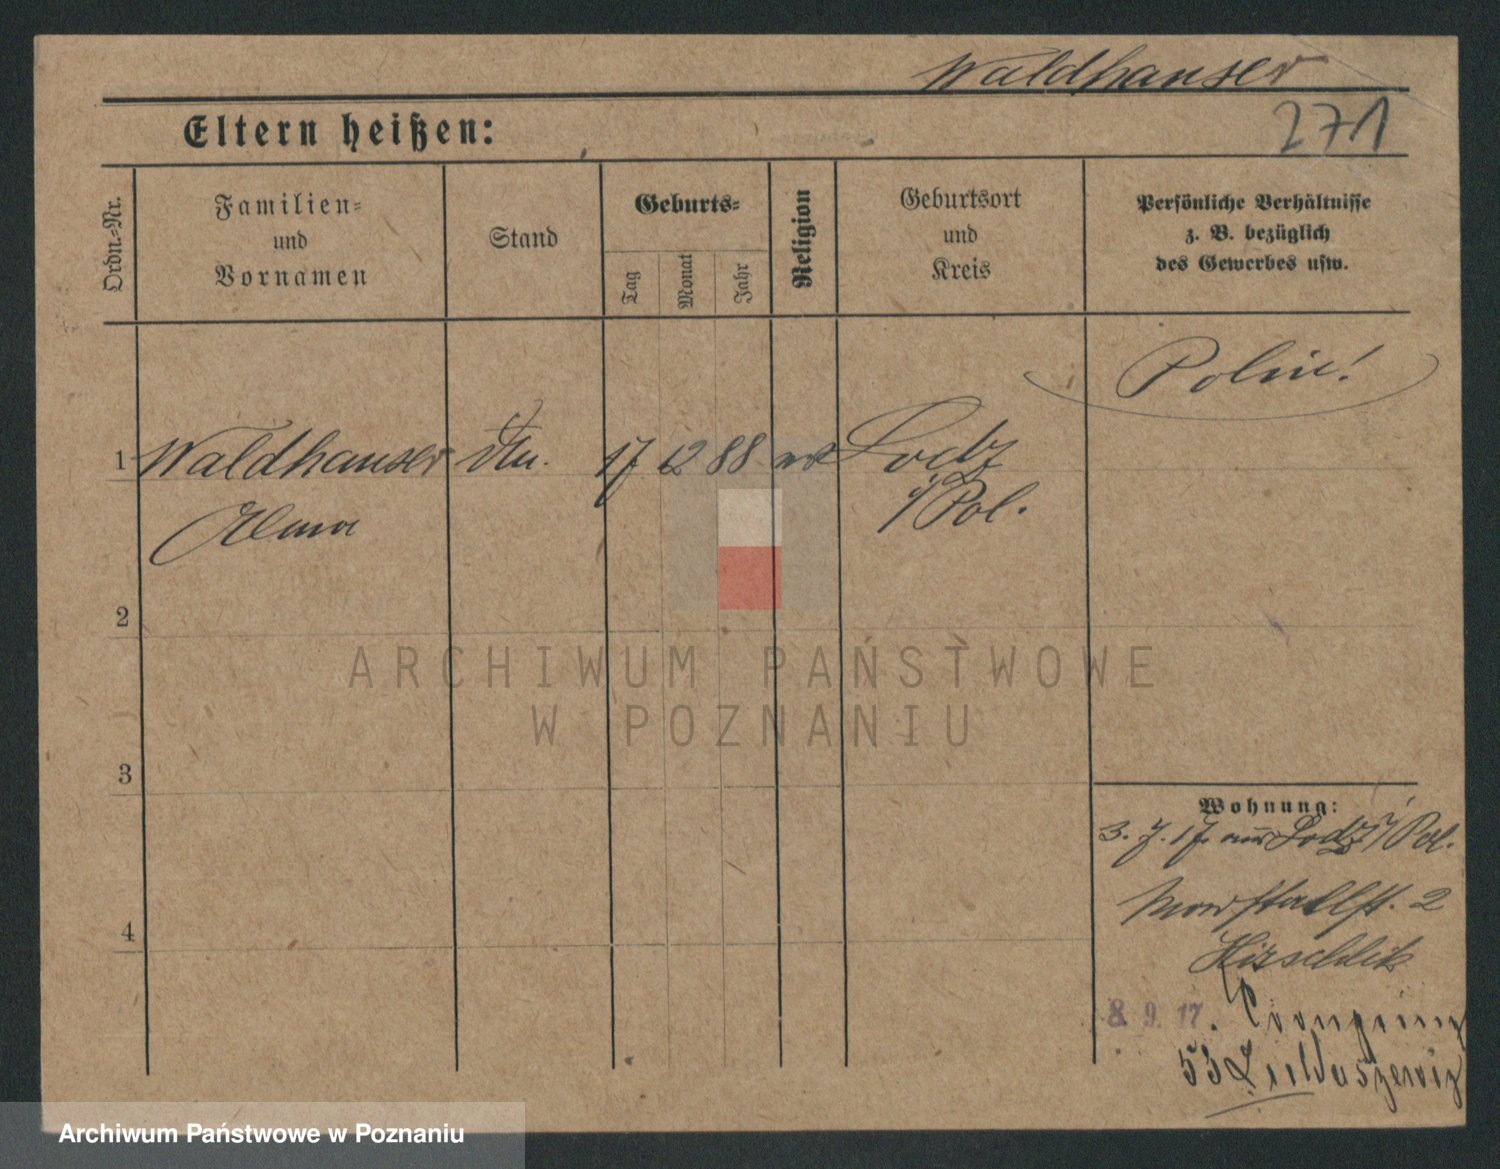 Waldhauser
271
Eltern heißen:
Ordn.-Nr.
Familien-
und
Vornamen
Stand
Geburts-
Tag
Monat
Jahr
Religion
Geburtsort
und
Kreis
Persönliche Verhältnisse
z. B. bezüglich
des Gewerbes usw.
Polin!
1 Waldhauser 17 12 88 Lodz
i/Pol.
2
3
4
Wohnung:
3. 7. 17. aus Lodz i/Pol.
2
8. 9. 17.
53
ARCHIWUM PAŃSTWOWE
W POZNANIU
Archiwum Państwowe w Poznaniu